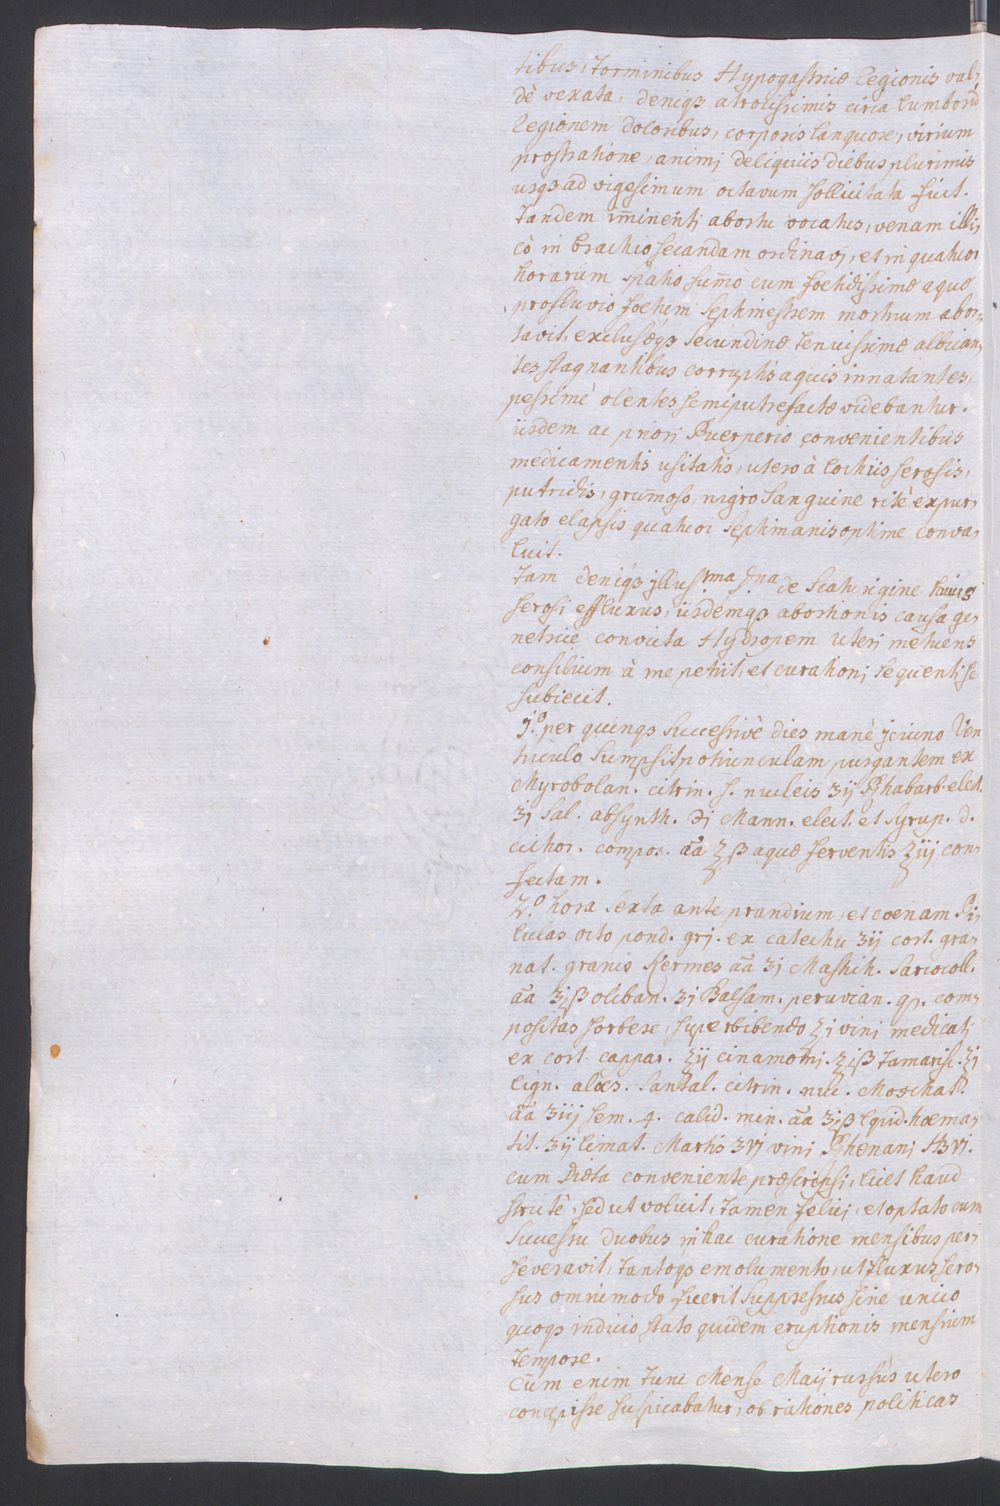 tibus, torminibus Hypogastricæ Regionis val,
dè vexata, deniqȝ atrocissimis circa Lumborū
Regionem doloribus, corporis languore, virium
prostratione, animi deliquiis diebus plurimis
usqȝ ad vigesimum octavum sollicitata fuit.
Tandem im̅inenti abortu vocatus, venam illi,
cò in brachio secandam ordinavi, et in quatuor
horarum spatio sum̅o cum foetidissimæ aquæ
profluvio foetum septimestrem mortuum abor,
tavit, exclusæqȝ secundinæ tenuissimæ albican,
tes stagnantibus corruptis aquis innatantes,
pessimè olentes semiputrefactæ videbantur.
iisdem ac priori Puerperio convenientibus
medicamentis usitatis, utero à Lochiis serosis,
putridis, grum̅oso, nigro Sanguine ritè expur,
gato elapsis quatuor septimanis optime conva,
luit.
Tam deniqȝ jllusma Dna de Scaturigine huius
serosi effluxus, iisdemqȝ abortionis causa ge,
netrice convicta Hydropem uteri metuens
consilium à me petiit, et curationi sequenti se
subiecit.
1.o per quinqȝ successivè dies manè jeiuno Ven
triculo sumpsit potiunculam purgantem ex
Myrobolan. citrin. s. nucleis ʒij Rhabarb. elect.
ʒj Sal. absynth. ℈i Mann. elect. et Syrup. d.
cichor. compos. aā ℥ß aquæ ferventis ℥iij con,
fectam.
2.o hora sexta ante prandium, et coenam Pi,
lulas octo pond. grj. ex catechu ʒij cort. gra,
nat. granis Kermes aā ʒj Mastich. Sarcocoll.
aā ʒiß oliban. ʒj Balsam. peruvian. qs. com,
positas sorbere, superbibendo ℥j vini medicati
ex cort. cappar. ℥ij cinamomi. ℥iß Tamarisc. ℥j
Lign. aloes. Santal. citrin. nuc. Moschat.
aā ʒiij sem. 4. calid. min. aā ʒiß Lapid. hæma,
tit. ʒij Limat. Martis ʒvj vini Rhenani ℔vj.
cum Diæta conveniente præscripsi, licet haud
strictè, sed ut voluit, tamen felici, et optato cum
Successu duobus in hac curatione mensibus per,
severavit, tantoqȝ emolumento, ut fluxus sero,
sus omnimodo fuerit suppressus sine unico
quoqȝ indicio stato quidem eruptionis mensium
tempore.
Cùm enim tunc Mense Maij rursùs utero
concepisse suspicabatur, ob rationes politicas